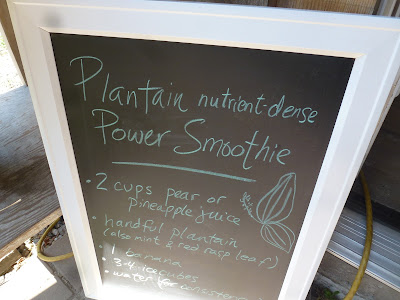 Plantain nutrient-dense
Power Smoothie
• 2 cups pear or
pineapple juice
• handful plantain
(also mint & red rasp leaf)
• 1 banana
• 3-4 ice cubes
• water for consistency